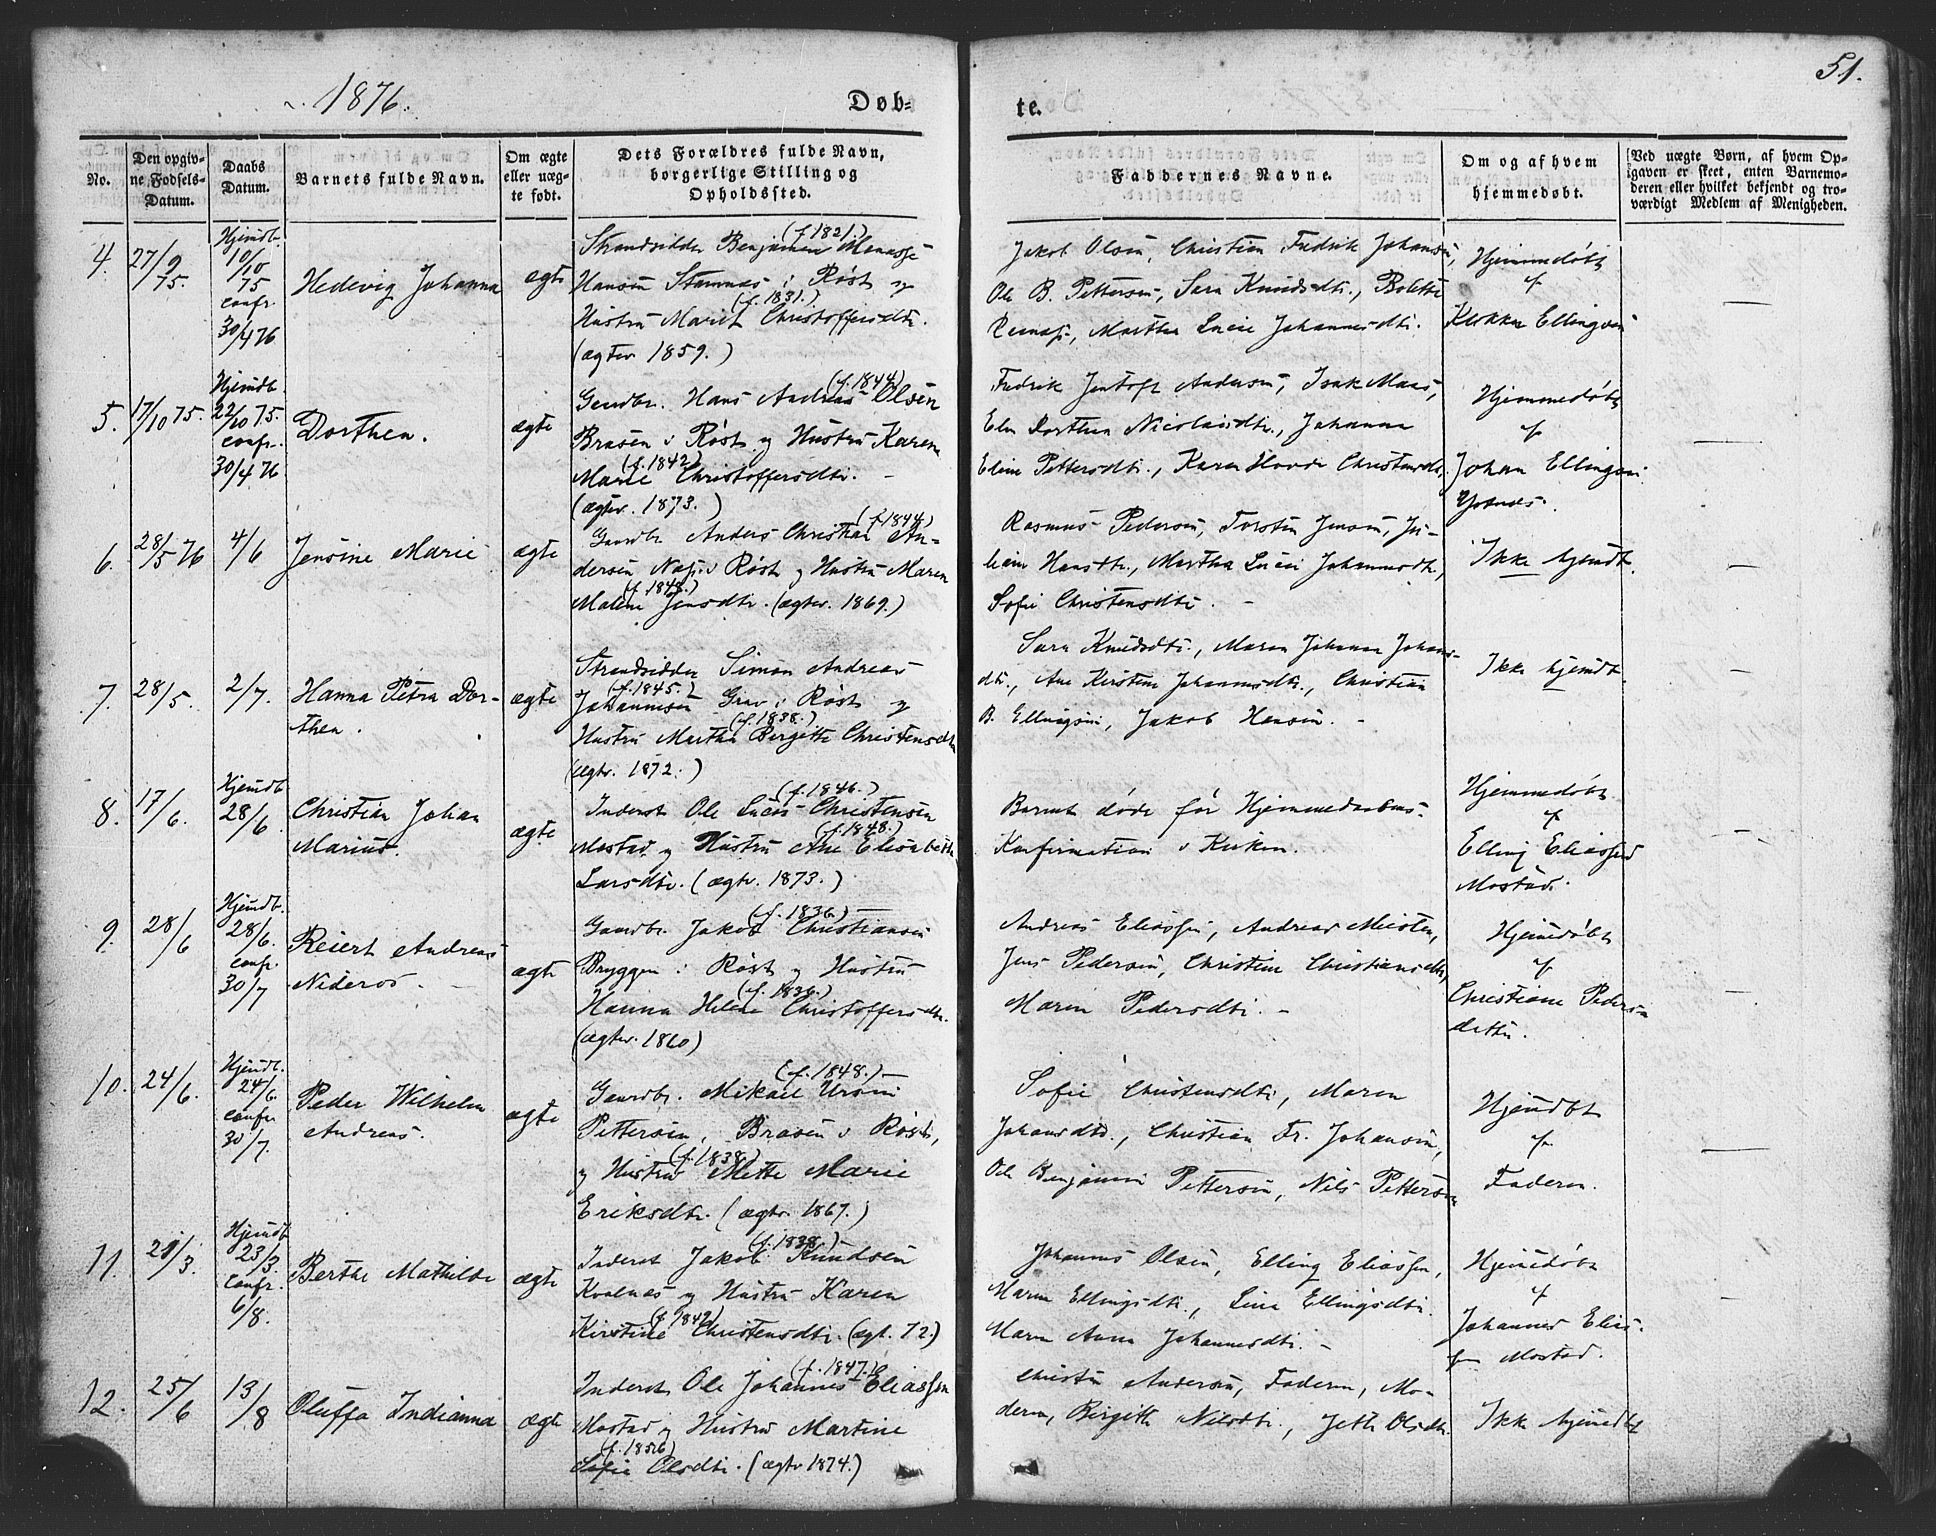 1876.
Døb-
te.
51.
No.
Den opgiv-
ne Fødsels-
Datum.
Daabs
Datum.
Barnets fulde Navn.
Om ægte
eller uæg-
te født.
Dets Forældres fulde Navn,
borgerlige Stilling og
Opholdssted.
Faddernes Navne.
Om og af hvem
hjemmedøbt.
Ved uægte Børn, af hvem Op-
igaven er skeet, enten Barnemo-
deren eller hvilket bekjendt og tro-
værdigt Medlem af Menigheden.
4.
27/9
75.
Hjemdb.
10/10
75
confr.
30/4 76
Hedevig Johanna
ægte
(f. 1821.)
Strandsidder Benjamin Manasse
Hansen Stamnas i Røst og
(f. 1831.)
Hustru Marit Christoffersdtr.
(ægtev. 1859.)
Jakob Olsen, Christian Fredrik Johansen,
Ole B. Pettersen, Sara Knudsdtr., Bolette
Martha Lucie Johannesdtr.
Hjemmedøbt
af
Klokker Ellingsen
5.
17/10 75.
Hjemdb.
22/10 75.
confr.
30/4 76
Dorthea.
ægte
(f. 1844)
Gaardbr. Hans Andreas Olsen
Brasen i Røst og Hustru Karen
(f. 1842)
Marie Christoffersdtr. -
(ægtev. 1873.)
Fredrik Jentoft Andersen, Isak Maas,
Elen Dorthea Nicolaisdtr., Johanna
Eline Pettersdtr., Karen Christensdtr.
Hjemmedøbt
af
Johan Ellingsen
6.
28/5 76
4/6
Jensine Marie
ægte
(f. 1844)
Gaardbr Anders Christian An-
dersen Næs i Røst og Hustru Maren
(f. 1848.)
Malene Jensdtr. (ægtev. 1869.)
Rasmus Pedersen, Torsten Jensen, Ju-
liane Hansdtr., Martha Lucie Johannesdtr.,
Sofie Christensdtr. -
Ikke hjemdt.
7.
28/5.
2/7.
Hanna Petra Dor-
thea.
ægte
Strandsidder Simon Andreas
(f. 1845.)
Johannesen Grav i Røst og
(f. 1838.)
Hustru Martha Bergitte Christensdtr
(ægtv. 1872.)
Sara Knudsdtr., Maren Johanna Johans-
dtr., Ane Kirstine Johannesdtr., Christian
B. Ellingsen, Jakob Hansen. -
Ikke hjemdt.
8.
17/6.
Hjemdb
28/6.
Christian Johan
Marius.
ægte
(f. 1846.)
Inderst Ole Lucas Christensen
(f. 1848.)
Mostad og Hustru Ane Elisabeth
Larsdtr. (ægtv. 1873.)
Barnet døde før Hjemmedaabens
Konfirmation i Kirken.
Hjemmedøbt
af
Elling Eliassen
Mostad.
9.
28/6
Hjemdb.
28/6.
confr.
30/7
Reiert Andreas
Niderøs. -
ægte
(f. 1836.)
Gaardbr. Jakob Christiansen
Bryggen i Røst og Hustru
(f. 1836.)
Hanna Helene Christoffersdtr.
(ægtev. 1860)
Andreas Eliassen, Andreas
Jens Pedersen, Christine Christiansdtr,
Maren Pedersdtr. -
Hjemdøbt
af
Christiane Peders-
datter.
10.
24/6.
Hjemdb.
24/6.
confr
30/7.
Peder Wilhelm
Andreas.
ægte
(f. 1848.) -
Gaardbr. Mikael Ursin
Pettersen, Brasen i Røst,
(f. 1838)
og Hustru Mette Marie
Eriksdtr. (ægtv. 1867.)
Sofie Christensdtr, Maren
Johansdtr., Christian Fr. Johansen,
Ole Benjamin Pettersen, Nils Pettersen
Hjemdøbt
af
Faderen.
11.
21/3.
Hjemdb
23/3.
confr.
6/8.
Berthe Mathilde
ægte
(f. 1838.)
Inderst Jakob Knudsen
Kvalnæs og Hustru Karen
(f. 1842)
Kirstine Christensdtr. (ægt. 72.)
Johannes Olsen, Elling Eliassen,
Maren Ellingsdtr., Lina Ellingsdtr.
Maren Anna Johannesdtr. -
Hjemdøbt
af
Johannes Elias-
sen Mostad.
12.
25/6
13/8
Oluffa Indianna
ægte
(f. 1847.)
Inderst Ole Johannes Eliassen
Mostad og Hustru Martine
(f. 1856)
Sofie Olsdtr. (ægtv 1874.)
Christen Andersen, Faderen, Mo-
deren, Birgitte Nilsdtr., Jette Olsdtr.
Ikke hjemdbt